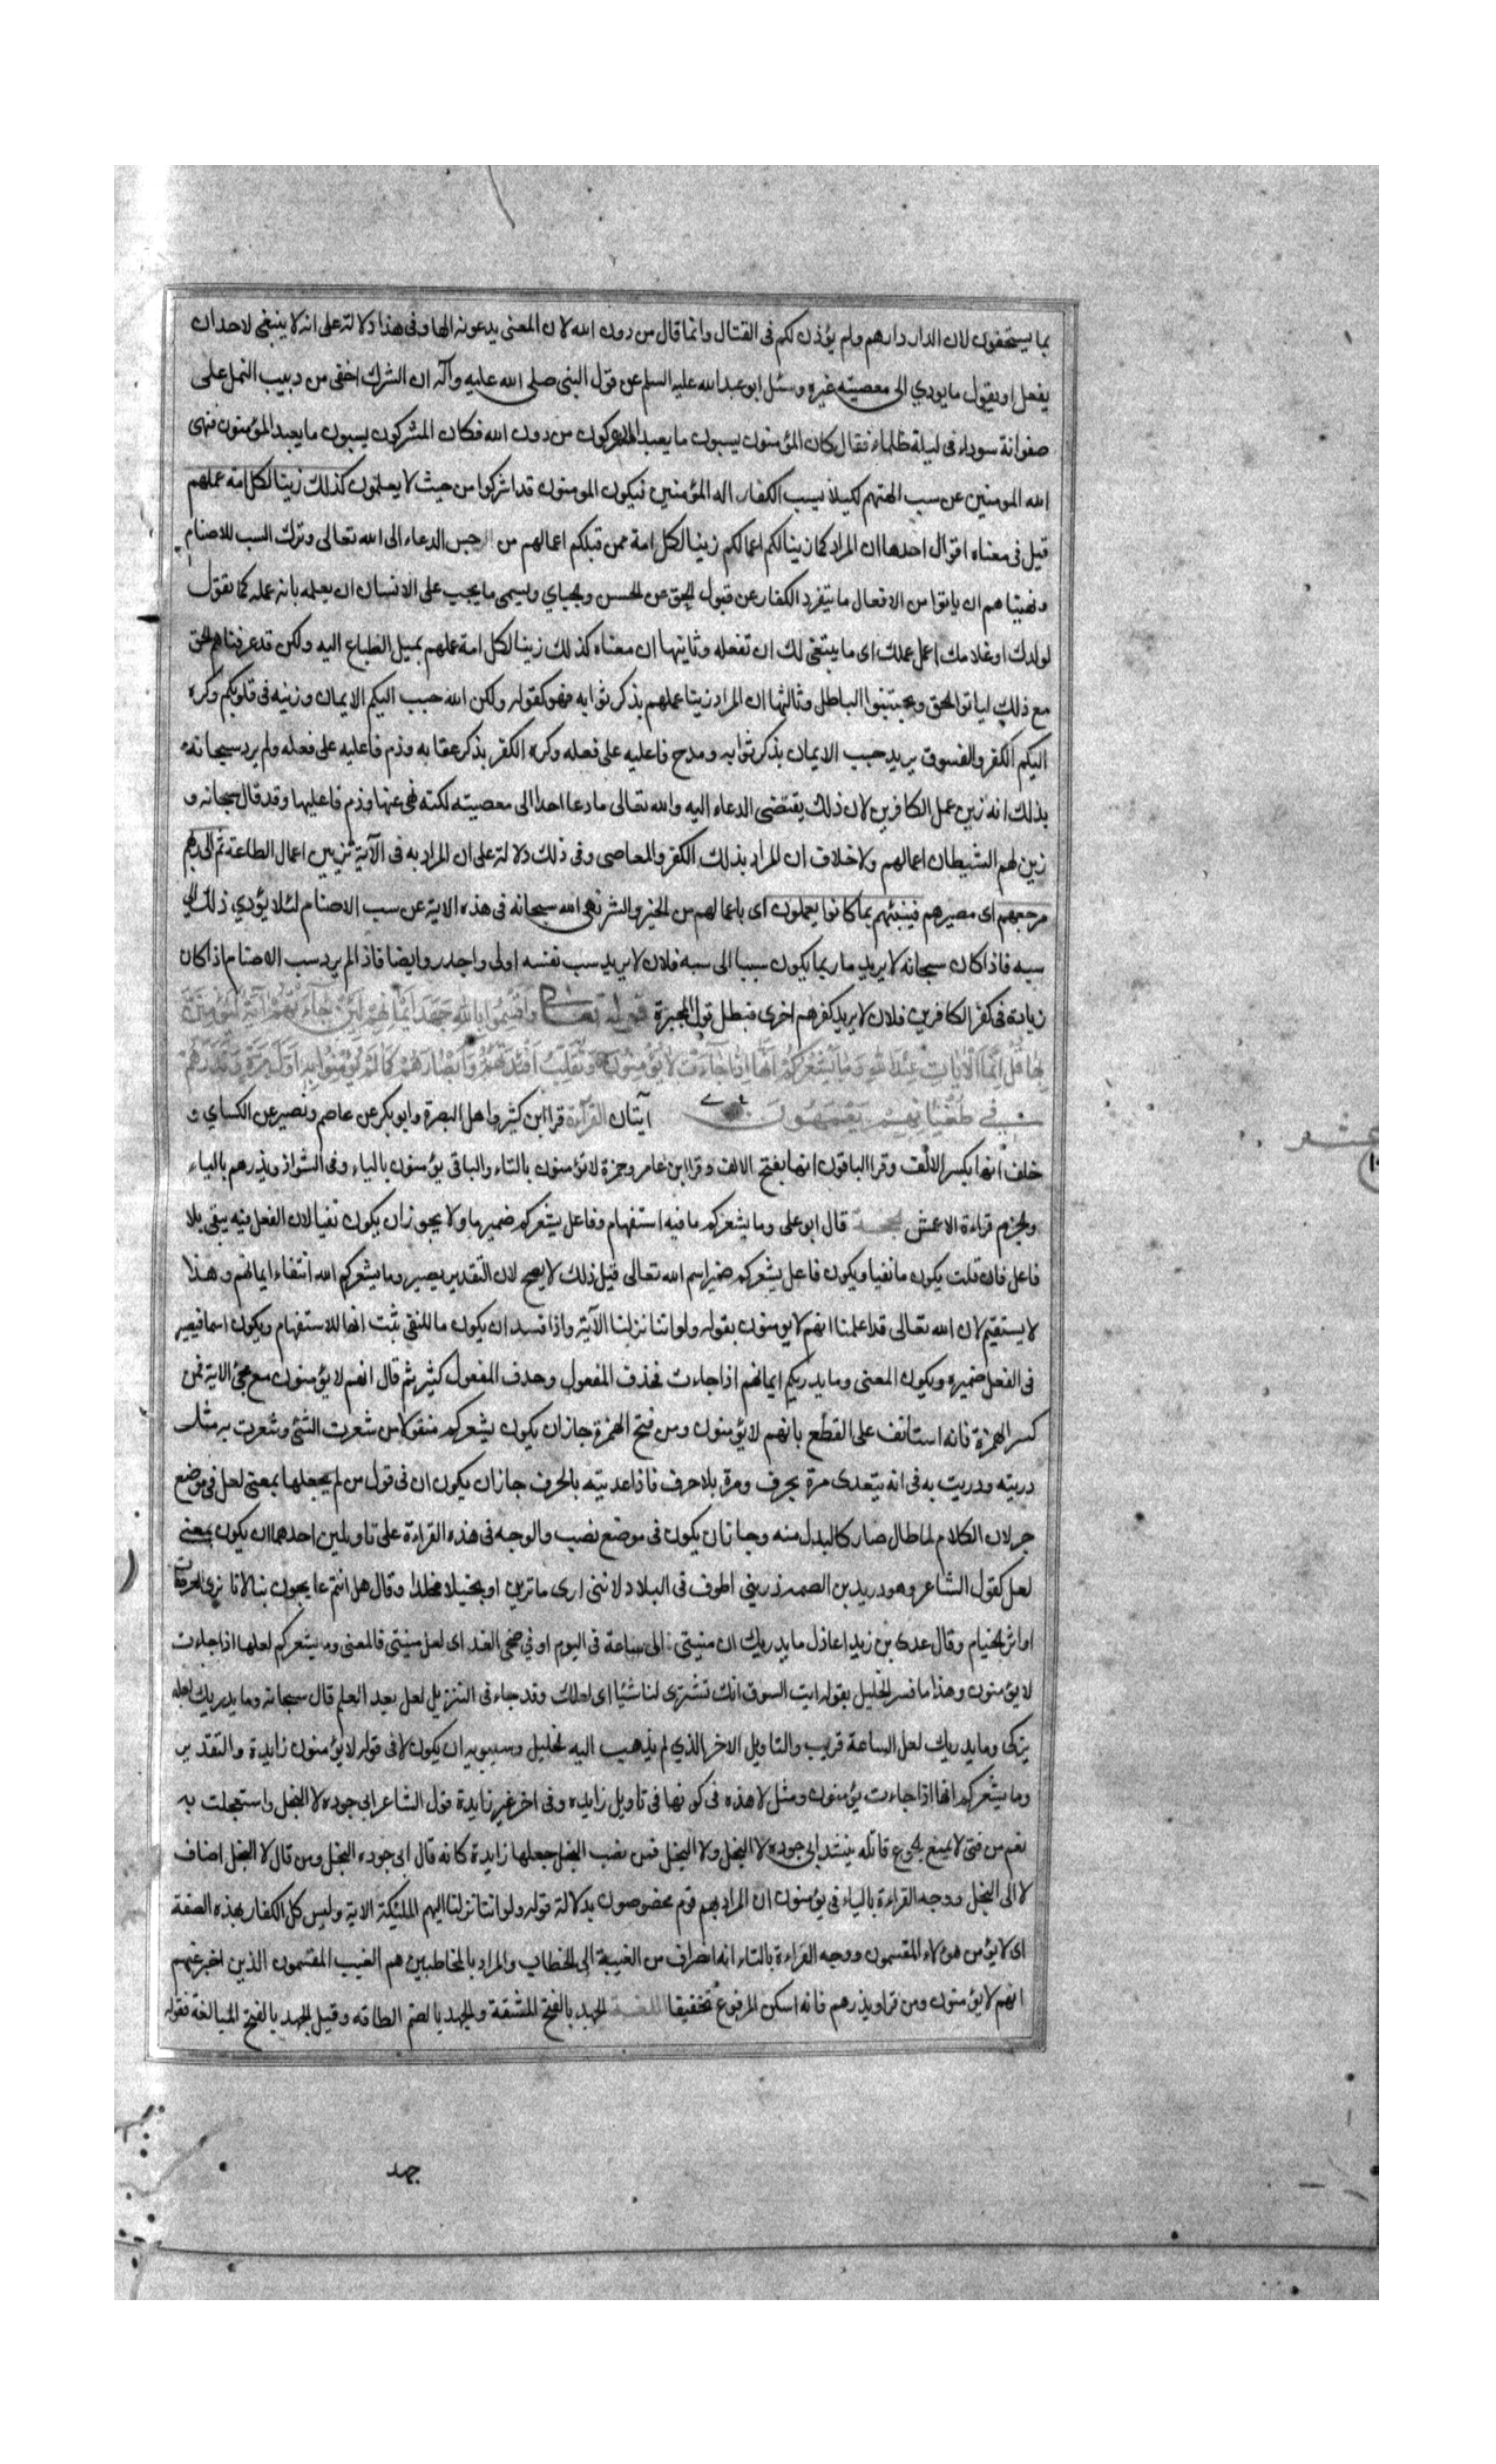 بما يستحقون لان الدار دارهم ولم يؤذن لكم فى القتال وانما قال من دون الله لان المعنى يدعونه الها وفى هذا دلالة على انه لا ينبغى لاحد ان
يفعل او يقول ما يودي الى معصيته غيره وسئل ابو عبد الله عليه السلم عن قول النبى صلى الله عليه وآله ان الشرك اخفى من دبيب النمل على
صفوانة سوداء فى ليلة ظلماء فقال كان المؤمنون يسبون ما يعبد المشركون من دون الله فكان المشركون يسبون ما يعبد المؤمنون فنهى
الله المومنين عن سب الهتهم لكيلا يسب الكفار اله المؤمنين فيكون المومنون قد اشركوا من حيث لا يعلمون كذلك زينا لكل امة عملهم
قيل فى معناه اقوال احدها ان المراد كما زينا لكم اعمالكم زينا لكل امة ممن قبلكم اعمالهم من حسن الدعاء الى الله تعالى وترك السب للاصنام
ونهيناهم ان ياتوا من الافعال ما ينفرد الكفار عن قبول الحق عن الحسن ويسمى ما يجب على الانسان ان يعمله بانه عمله كما تقول
لولدك او غلامك اعمل عملك اى ما ينبغى لك ان تفعله وثانيها ان معناه كذلك زينا لكل امة عملهم بميل الطباع اليه ولكن قد عرفناهم الحق
مع ذلك لياتوا الحق ويجتنبوا الباطل وثالثها ان المراد زينا عملهم بذكر ثوابه فهو كقوله ولكن الله حبب اليكم الايمان وزينه فى قلوبكم وكره
اليكم الكفر والفسوق يريد حبب الايمان بذكر ثوابه ومدح فاعليه على فعله وكره الكفر بذكر عقابه وذم فاعليه على فعله ولم يرد سبحانه
بذلك انه زين عمل الكافرين لان ذلك يقتضى الدعاء اليه والله تعالى ما دعا احدا الى معصيته لكنه نهى عنها وذم فاعليها وقد قال سبحانه و
زين لهم الشيطان اعمالهم ولا خلاف ان المراد بذلك الكفر والمعاصى وفى ذلك دلالة على ان المراد به فى الآية تزيين اعمال الطاعة ثم الى ربهم
مرجعهم اى مصيرهم فينبئهم بما كانوا يعملون اى باعمالهم من الخير والشر نهى الله سبحانه فى هذه الاية عن سب الاصنام لئلا يؤدي ذلك الى
سبه فاذا كان سبحانه لا يريد ما ربما يكون سببا الى سبه فلان لا يريد سب نفسه اولى واجدر وايضا فاذا لم يرد سب الاصنام اذا كان
زيادة فى كفر الكافرين فلان لا يريد كفرهم اخرى فبطل قول المجبرة قوله تعالى واقسموا بالله جهد ايمانهم لئن جاءتهم آية ليؤمنن
بها قل انما الآيات عند الله وما يشعركم انها اذا جاءت لا يؤمنون ونقلب افئدتهم وابصارهم كما لم يؤمنوا به اول مرة ونذرهم
فى طغيانهم يعمهون آيتان القرآءة قرا ابن كثير واهل البصرة وابو بكر عن عاصم ونصير عن الكساي و
خلف انها بكسر الالف وقرا الباقون انها بفتح الالف وقرا ابن عامر وحمزة لا تؤمنون بالتاء والباقى يؤمنون بالياء وفى الشواذ ويذرهم بالياء
والجزم قراءة الاعمش الحجة قال ابو على وما يشعركم ما فيه استفهام وفاعل يشعركم ضمير ما ولا يجوز ان يكون نفيا لان الفعل فيه يبقى بلا
فاعل فان قلت يكون ما نفيا ويكون فاعل يشعركم ضمير اسم الله تعالى قيل ذلك لا يصح لان التقدير يصير وما يشعركم الله انتفاء ايمانهم وهذا
لا يستقيم لان الله تعالى قد اعلمنا انهم لا يومنون بقوله ولو اننا نزلنا الآية واذا فسد ان يكون ما للنفى ثبت انها للاستفهام ويكون اسما فيصير
فى الفعل ضميره ويكون المعنى وما يدريكم ايمانهم اذا جاءت فحذف المفعول وحذف المفعول كثير ثم قال انهم لا يؤمنون مع مجئ الاية فمن
كسر الهمزة فانه استانف على القطع بانهم لا يؤمنون ومن فتح الهمزة جاز ان يكون يشعركم منقولا من شعرت الشئ وشعرت به مثل
دريته ودريت به فى انه يتعدى مرة بحرف ومرة بلا حرف فاذا عديته بالحرف جاز ان يكون ان فى قول من لم يجعلها بمعنى لعل فى موضع
جر لان الكلام لما طال صار كالبدل منه وجاز ان يكون فى موضع نصب والوجه فى هذه القراءة على تاويلين احدهما ان يكون بمعنى
لعل كقول الشاعر وهو دريد بن الصمه ذريني اطوف فى البلاد لاننى ارى ما ترين او بخيلا مخلدا وقال هل انتم عايجون بنا لانا نرى العرصات
او اثر الخيام وقال عدى بن زيد اعاذل ما يدريك ان منيتى الى ساعة فى اليوم او فى ضحى الغد اى لعل منيتى فالمعنى وما يشعركم لعلها اذا جاءت
لا يؤمنون وهذا ما فسر الخليل بقوله ايت السوق انك تشترى لنا شيئا اى لعلك وقد جاء فى التنزيل لعل بعد العلم قال سبحانه وما يدريك لعله
يزكى وما يدريك لعل الساعة قريب والتاويل الاخر الذي لم يذهب اليه الخليل وسيبويه ان يكون لا فى قوله لا يؤمنون زايدة والتقدير
وما يشعركم انها اذا جاءت يؤمنون ومثل لا هذه فى كونها فى تاويل زايدة وفى اخر غير زايدة قول الشاعر ابى جوده لا البخل واستعجلت به
نعم من فتى لا يمنع الجوع قاتله ينشد ابى جوده لا البخل ولا البخل فمن نصب البخل جعلها زايدة كانه قال ابى جوده البخل ومن قال لا البخل اضاف
لا الى البخل ووجه القراءة بالياء فى يؤمنون ان المراد بهم قوم مخصوصون بدلالة قوله ولو اننا نزلنا اليهم الملئكة الاية وليس كل الكفار بهذه الصفة
اى لا يؤمن هؤلاء المقسمون ووجه القراءة بالتاء انه انصراف من الغيبة الى الخطاب والمراد بالمخاطبين هم الغيب المقسمون الذين اخبر عنهم
انهم لا يؤمنون ومن قرا ويذرهم فانه اسكن المرفوع تخفيفا اللغة الجهد بالفتح المشقة والجهد بالضم الطاقه وقيل الجهد بالفتح المبالغة فقوله
جهد